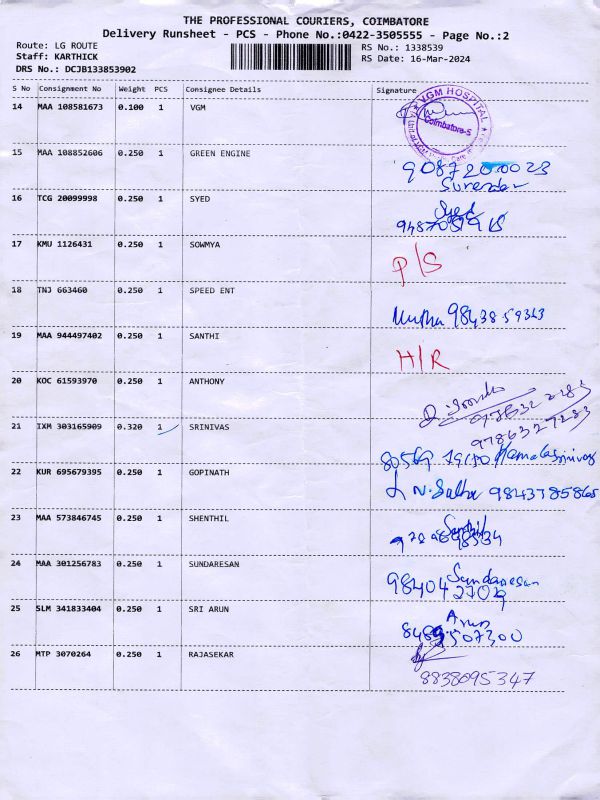 THE PROFESSIONAL COURIERS, COIMBATORE
Delivery Runsheet - PCS - Phone No.:0422-3505555 - Page No.:2
Route: LG ROUTE
RS No.: 1338539
Staff: KARTHICK
RS Date: 16-Mar-2024
DRS No.: DCJB133853902
S No Consignment No Weight PCS Consignee Details Signature
14 MAA 108581673 0.100 1 VGM
VGM HOSPITAL
Coimbatore-5
15 MAA 108852606 0.250 1 GREEN ENGINE
9087200023
Surender
16 TCG 20099998 0.250 1 SYED
Syed
17 KMU 1126431 0.250 1 SOWMYA
P/S
18 TNJ 663460 0.250 1 SPEED ENT
Muthu 9843859343
19 MAA 944497402 0.250 1 SANTHI
H/R
20 KOC 61593970 0.250 1 ANTHONY
9786327283
21 IXM 303165909 0.320 1 SRINIVAS
22 KUR 695679395 0.250 1 GOPINATH
9843785865
23 MAA 573846745 0.250 1 SHENTHIL
Senthil
24 MAA 301256783 0.250 1 SUNDARESAN
Sundaresan
98404 27029
25 SLM 341833404 0.250 1 SRI ARUN
Arun
26 MTP 3070264 0.250 1 RAJASEKAR
8838095347